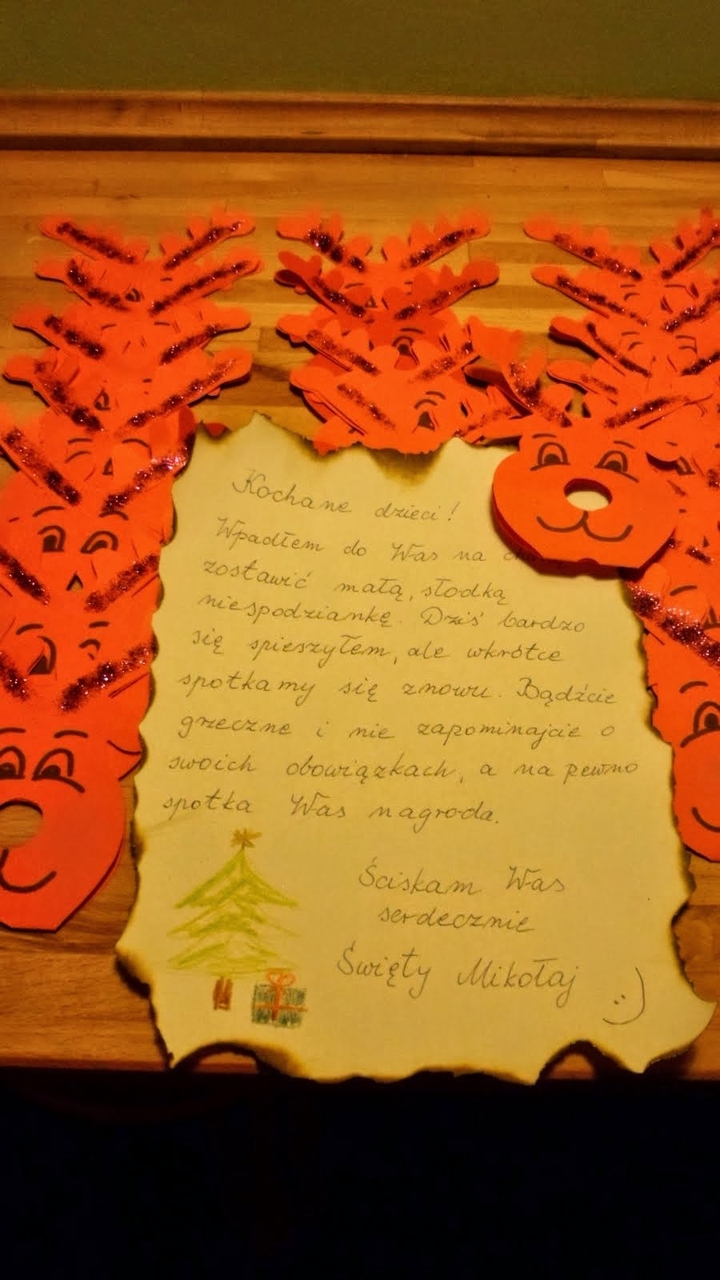 Kochane dzieci!
Wpadłem do Was na
zostawić małą, słodką
niespodziankę. Dziś bardzo
się spieszyłem, ale wkrótce
spotkamy się znowu. Bądźcie
grzeczne i nie zapominajcie o
swoich obowiązkach, a na pewno
spotka Was nagroda.
Ściskam Was
serdecznie
Święty Mikołaj :)